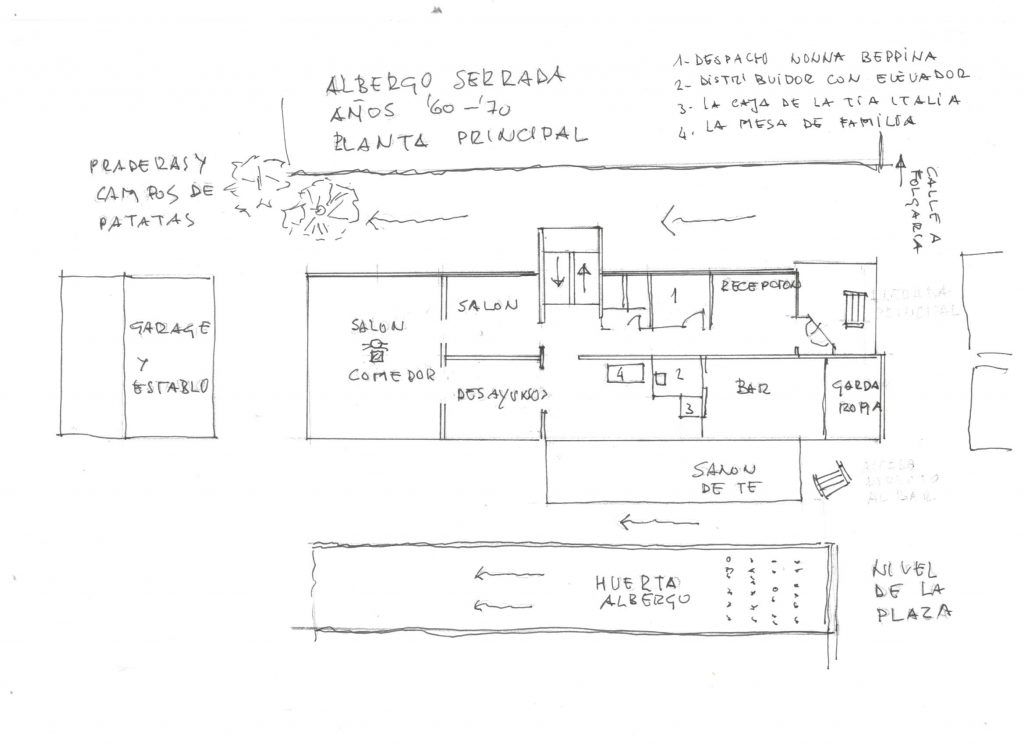 ALBERGO SERRADA
AÑOS '60-'70
PLANTA PRINCIPAL
1- DESPACHO NONNA BEPPINA
2- DISTRIBUIDOR CON ELEVADOR
3. LA CAJA DE LA TIA ITALIA
4. LA MESA DE FAMILIA
PRADERAS Y
CAMPOS DE
PATATAS
CALLE A
FOLGARIA
GARAGE
Y
ESTABLO
SALON
COMEDOR
SALON
DESAYUNOS
1
RECEPCION
PRINCIPAL
4
2
3
BAR
GARDA
ROPIA
SALON
DE TE
DIRECTO
AL BAR
HUERTA
ALBERGO
NIVEL
DE LA
PLAZA